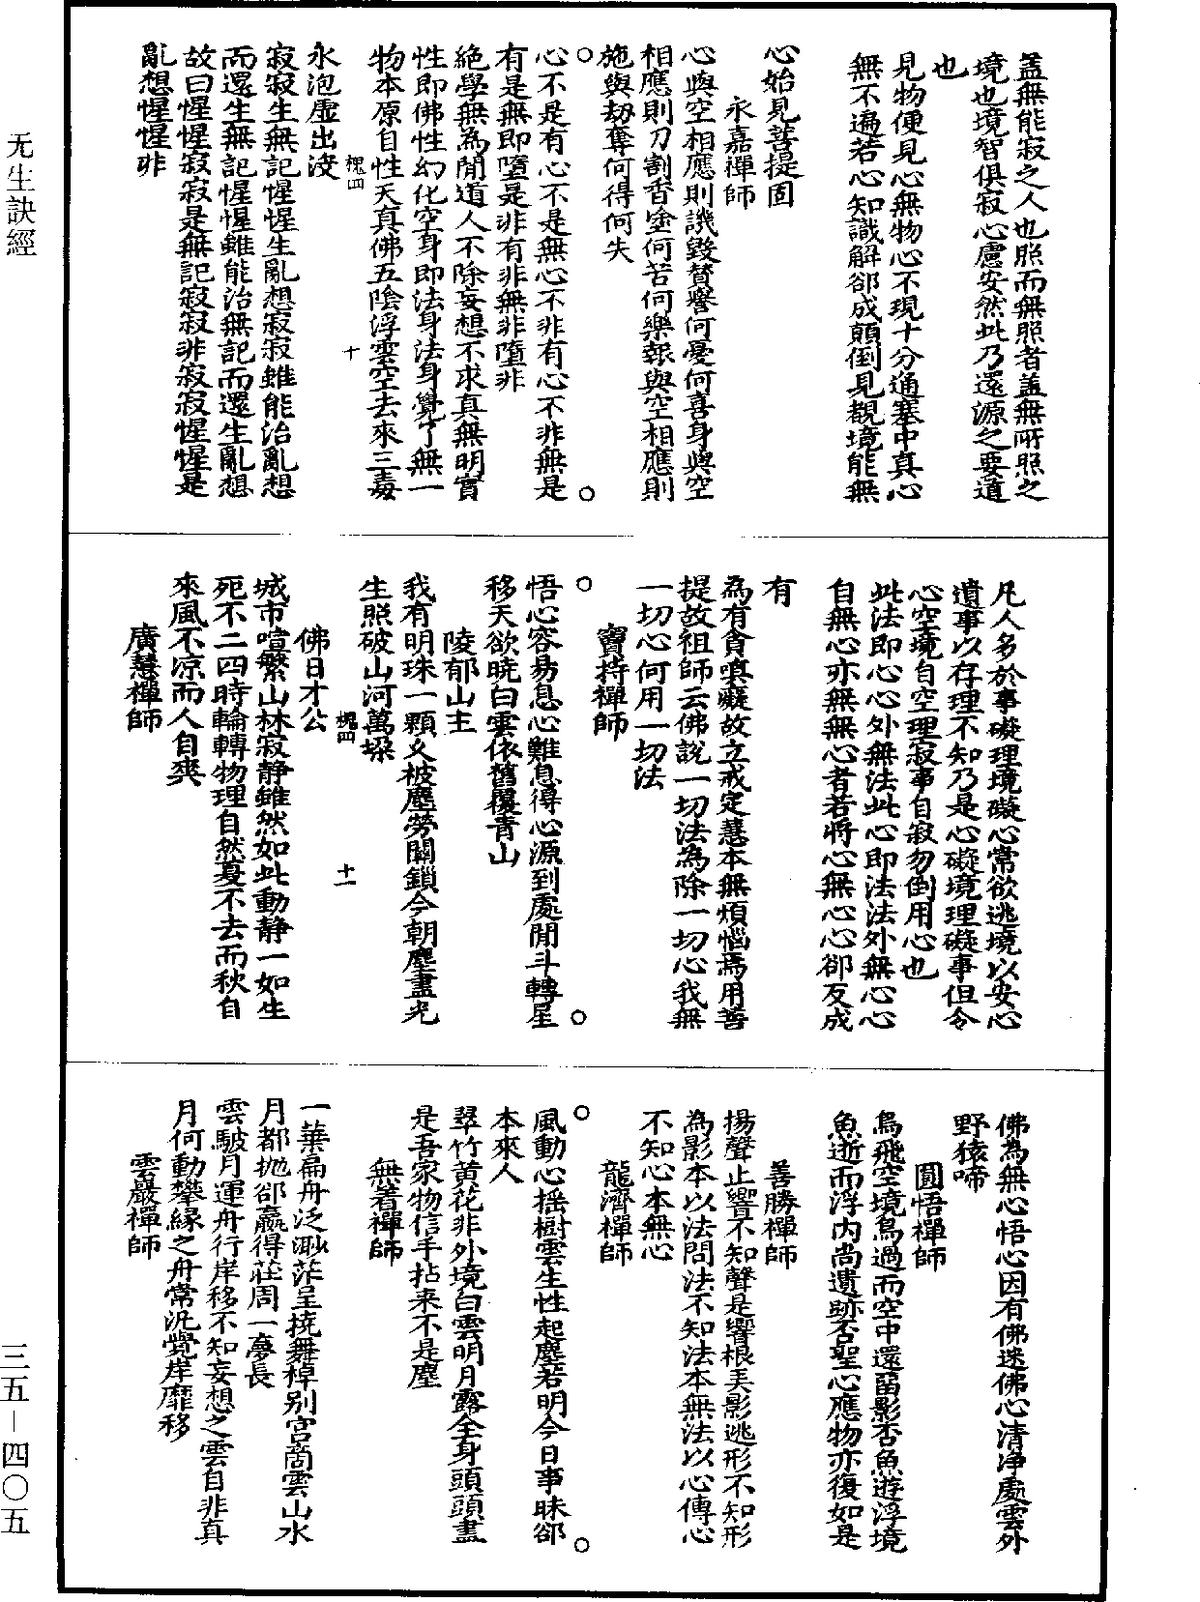 蓋無能寂之人也照而無照者蓋無所照之
境也境智俱寂心慮安然此乃還源之要道
也
見物便見心無物心不現十分通塞中真心
無不遍若心知識解卻成顛倒見覩境能無
心始見菩提面
永嘉禪師
心與空相應則譏毀贊譽何憂何喜身與空
相應則刀割香塗何苦何樂報與空相應則
施與刧奪何得何失
心不是有心不是無心不非有心不非無是
有是無即墮是非有非無非墮非
絕學無為閒道人不除妄想不求真無明實
性即佛性幻化空身即法身法身覺了無一
物本原自性天真佛五陰浮雲空去來三毒
槐四
十
水泡虛出没
寂寂生無記惺惺生亂想寂寂雖能治亂想
而還生無記惺惺雖能治無記而還生亂想
故曰惺惺寂寂是無記寂寂非寂寂惺惺是
亂想惺惺非
凡人多於事礙理境礙心常欲逃境以安心
遺事以存理不知乃是心礙境理礙事但令
心空境自空理寂事自寂勿倒用心也
此法即心心外無法此心即法法外無心心
自無心亦無無心者若將心無心心卻反成
有
為有貪嗔癡故立戒定慧本無煩惱焉用菩
提故祖師云佛說一切法為除一切心我無
一切心何用一切法
寶持禪師
悟心容易息心難息得心源到處閒斗轉星
移天欲曉白雲依舊覆青山
陵郁山主
我有明珠一顆久被塵勞關鎖今朝塵盡光
生照破山河萬朶
槐四
十一
佛日才公
城市喧繁山林寂静雖然如此動静一如生
死不二四時輪轉物理自然夏不去而秋自
來風不凉而人自爽
廣慧禪師
佛為無心悟心因有佛迷佛心清净處雲外
野猿啼
圓悟禪師
鳥飛空境鳥過而空中還留影否魚遊浮境
魚逝而浮内尚遺跡否聖心應物亦復如是
善勝禪師
揚聲止響不知聲是響根美影逃形不知形
為影本以法問法不知法本無法以心傳心
不知心本無心
龍濟禪師
風動心揺樹雲生性起塵若明今日事昧卻
本來人
翠竹黄花非外境白雲明月露全身頭頭盡
是吾家物信手拈来不是塵
無着禪師
一葉扁舟泛渺茫呈撓舞棹别宫商雲山水
月都抛卻贏得莊周一夢長
雲駛月運舟行岸移不知妄想之雲自非真
月何動攀緣之舟常汎覺岸靡移
雲巖禪師
无生訣經
三五－四〇五